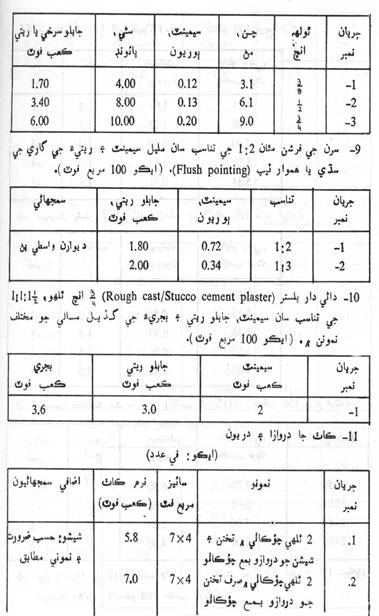 جريان نمبر | ٿولهه انچ | چن، مڻ | سيمينٽ، ٻوريون | سڻي، پائونڊ | جابلو سرخي يا ريتي ڪعب فوٽ
-1 | 3/8 | 3.1 | 0.12 | 4.00 | 1.70
-2 | 1/2 | 6.1 | 0.13 | 8.00 | 3.40
-3 | 3/4 | 9.0 | 0.20 | 10.00 | 6.00
9- سرن جي فرشن مٿان 1:2 جي تناسب سان مليل سيمينٽ ۽ ريتيءَ جي گاري جي
سڌي يا هموار ٽيپ (Flush pointing). (ايڪو 100 مربع فوٽ).
جريان نمبر | تناسب | سيمينٽ، ٻوريون | جابلو ريتي، ڪعب فوٽ | سمجهاڻي
-1 | 1:2 | 0.72 | 1.80 | ديوارن واسطي پڻ
-2 | 1:3 | 0.34 | 2.00
10- داڻي دار پلستر (Rough cast/Stucco cement plaster) 3/4 انچ ٿلهو، 1:1:1½
جي تناسب سان سيمينٽ، جابلو ريتي ۽ بجريءَ جي گڏيل مسالي جو مختلف
نمونن ۾. (ايڪو 100 مربع فوٽ).
جريان نمبر | سيمينٽ ڪعب فوٽ | جابلو ريتي ڪعب فوٽ | بجري ڪعب فوٽ
-1 | 2 | 3.0 | 3.6
11- ڪاٺ جا دروازا ۽ دريون
(ايڪو: في عدد)
جريان نمبر | نمونو | سائيز مربع فٽ | نرم ڪاٺ (ڪعب فوٽ) | اضافي سمجهاڻيون
1. | 2 ٿلهي چؤڪاٺي ۾ تختن ۽ | 7×4 | 5.8 | شيشو: حسب ضرورت
شيشن جو دروازو بمع چؤڪاٺو | ۽ نموني مطابق
2. | 2 ٿلهي چؤڪاٺي ۾ صرف تختن | 7×4 | 7.0
جو دروازو بمع چؤڪاٺو